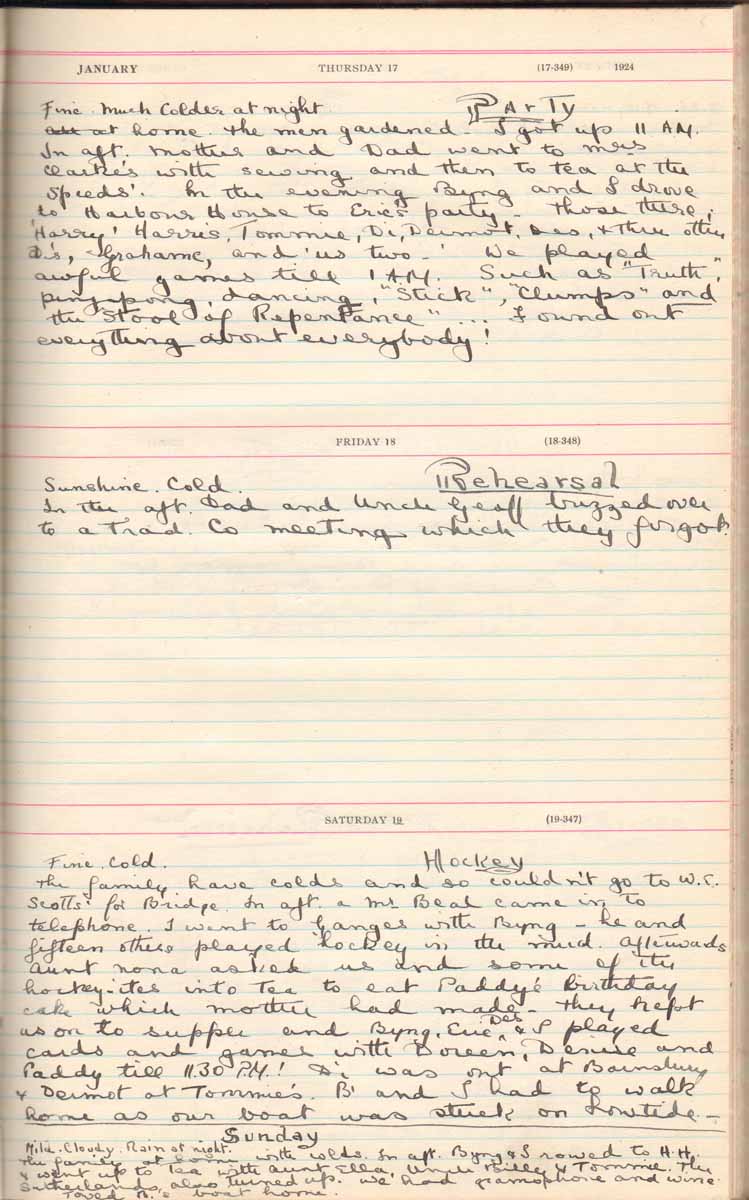 JANUARY THURSDAY 17 (17-349) 1924
Fine. Much Colder at night PArTy
at home. The men gardened - I got up 11 A.M.
In aft. Mother and Dad went to Mrs
Clarke's with sewing and then to tea at the
Speeds'. In the evening Byng and I drove
to Harbour House to Eric's party - Those there;
'Harry' Harris, Tommie, Di, Dermot, Des, & three other
D.'s, Grahame, and 'us two -' We played
awful games till 1 A.M. Such as "Truth",
pingpong, dancing, "Stick", "Clumps" and
the Stool of Repentance" ... Found out
everything about everybody!
FRIDAY 18 (18-348)
Sunshine. Cold. Rehearsal
In the aft. Dad and Uncle Geoff buzzed over
to a Trad. Co meeting which they forgot.
SATURDAY 19 (19-347)
Fine. Cold. Hockey
The family have colds and so couldn't go to W.E.
Scotts' for Bridge. In aft. a Mr. Beal came in to
telephone. I went to Ganges with Byng - he and
fifteen others played hockey in the mud. Afterwards
Aunt Nona asked us and some of the
hockey-ites into tea to eat Paddy's birthday
cake which mother had made - They kept
us on to supper and Byng, Eric, Des & I played
cards and games with Doreen, Denise and
Paddy till 11.30 P.M.! Di was out at Barnsbury
& Dermot at Tommie's. B' and I had to walk
home as our boat was stuck on lowtide -
Sunday
Mild. Cloudy. Rain at night.
The family at home with colds. In aft. Byng & I rowed to H.H.
& went up to tea with Aunt Ella, Uncle Billy & Tommie. The
Sutherlands also turned up. We had gramophone and wine.
Towed B.'s boat home.